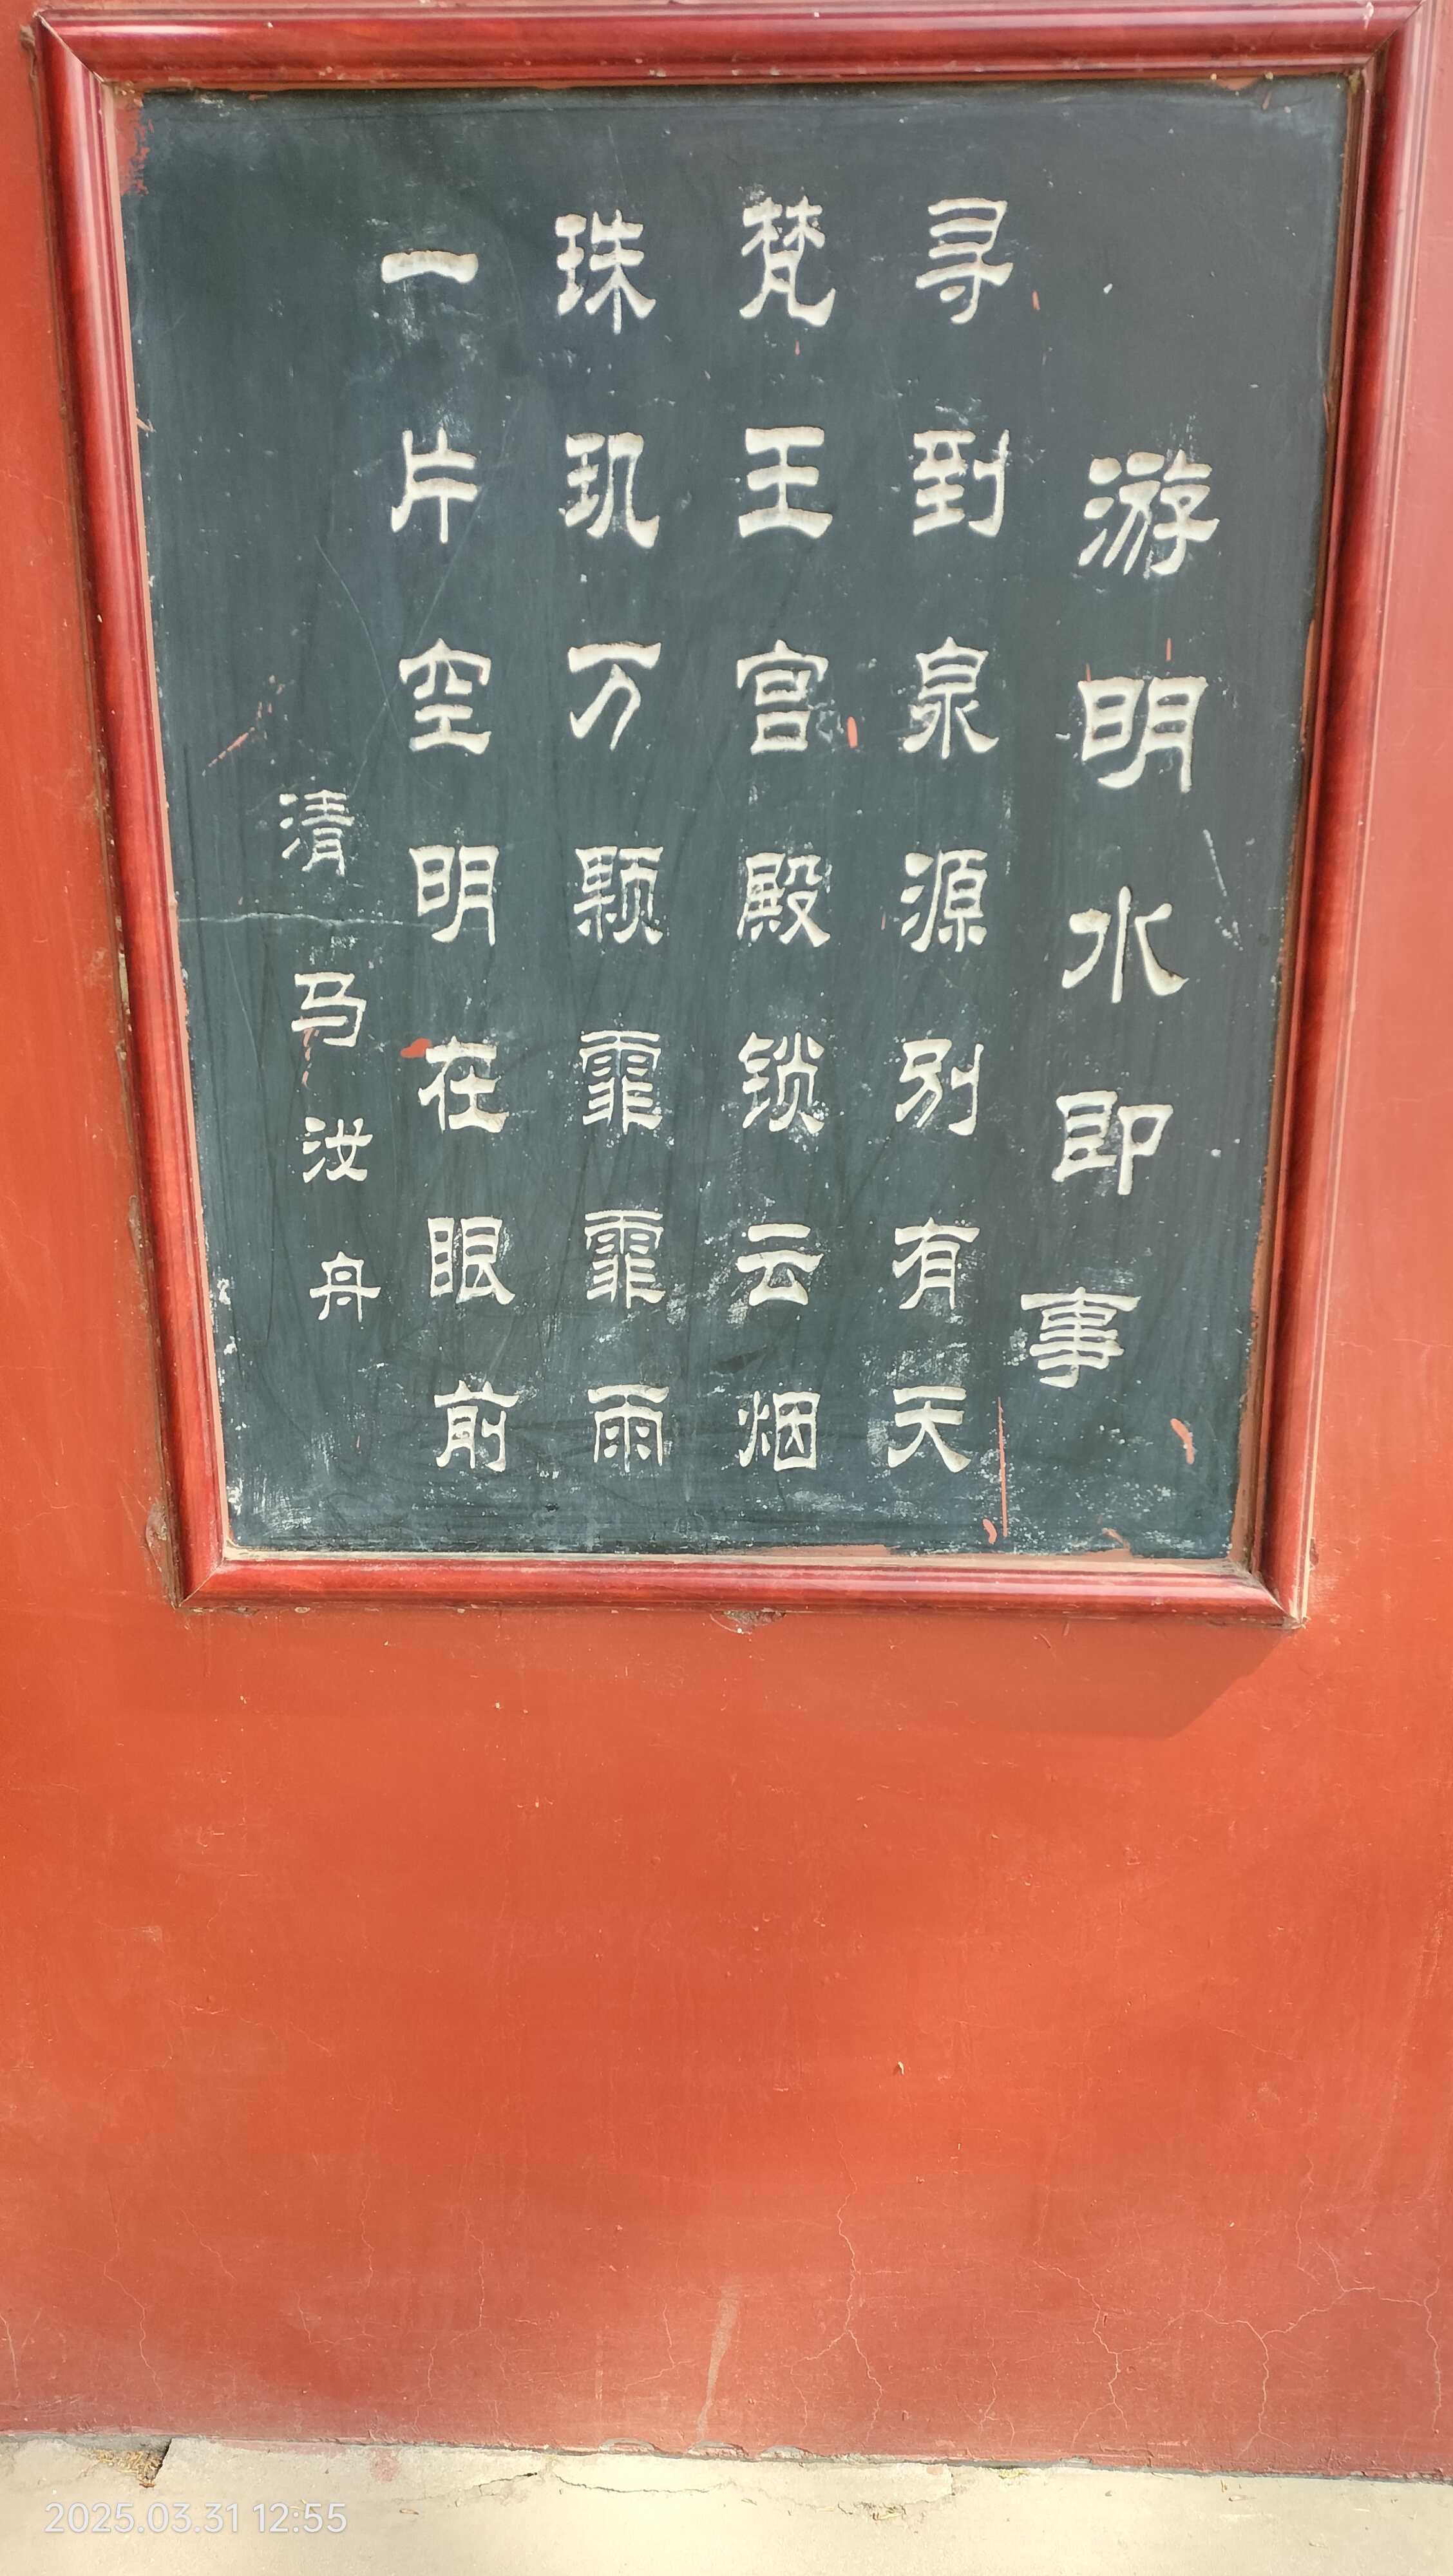 游明水即事
寻到泉源别有天
梵王宫殿锁云烟
珠玑万颗霏霏雨
一片空明在眼前
清马汝舟
2025.03.31 12:55